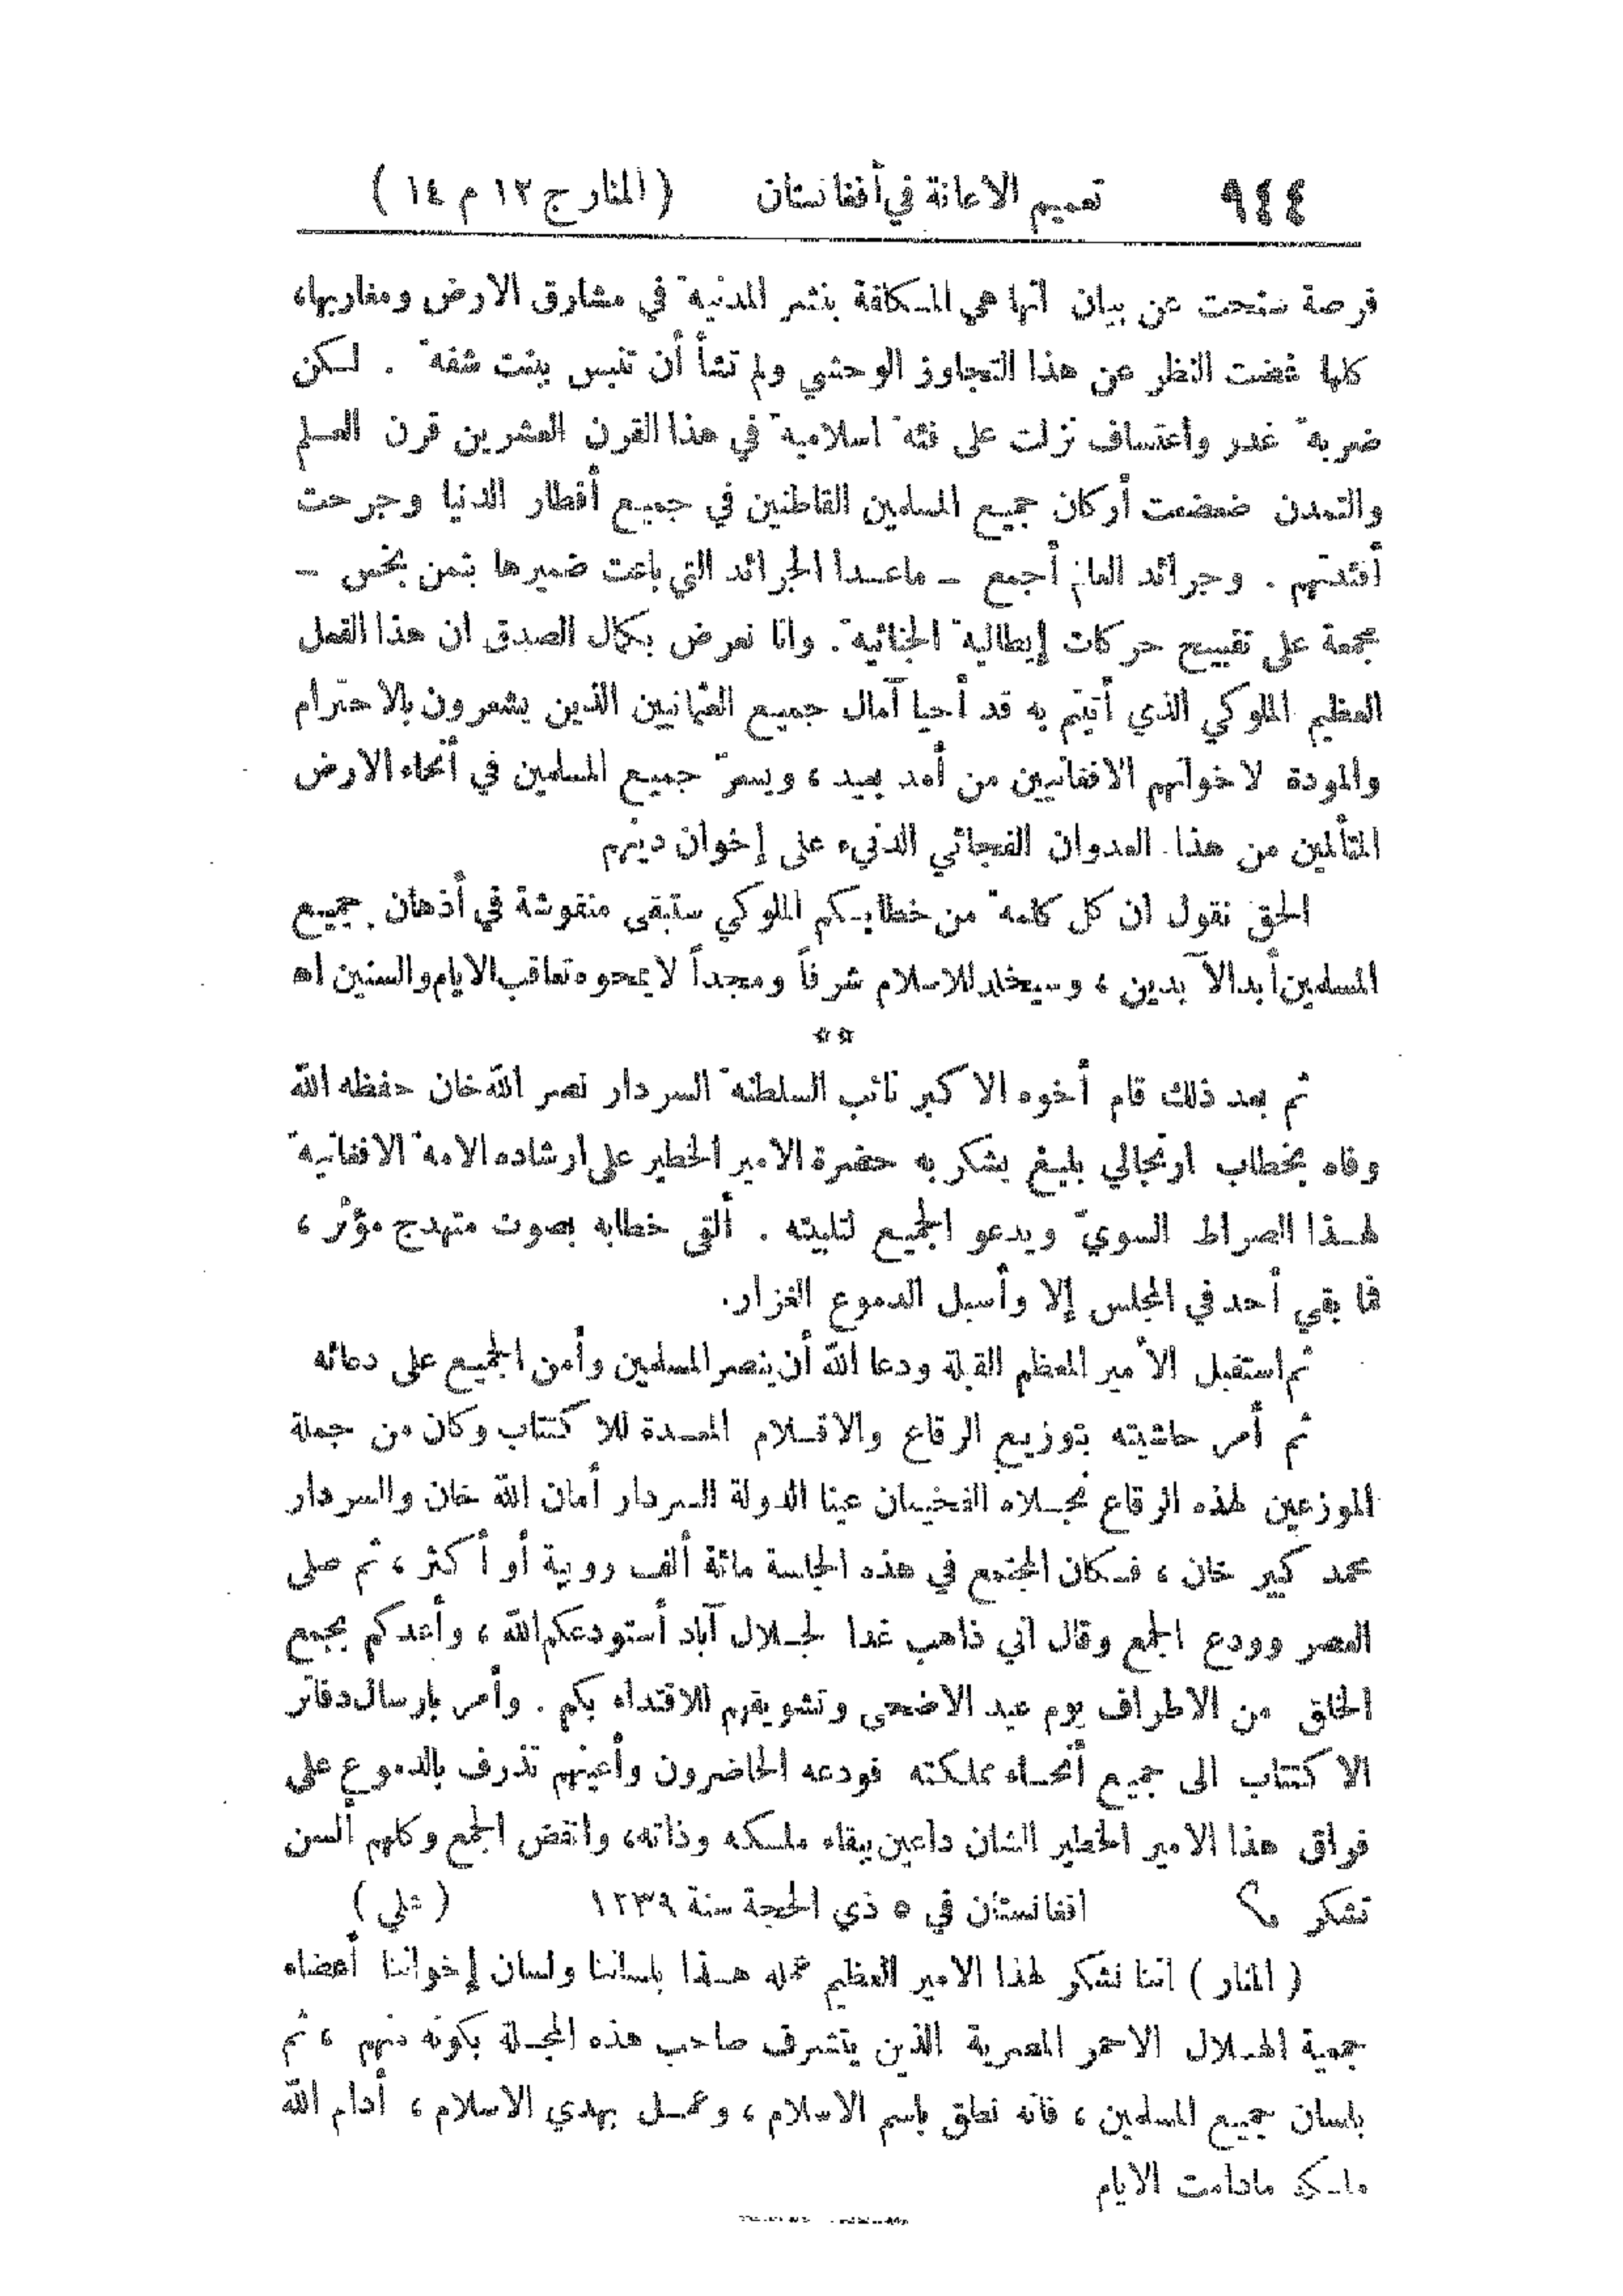 ٩٤٤ تعميم الاعانة في أفغانستان (المنار ج ١٢ م ١٤)
فرصة سنحت عن بيان انها هي المكلفة بنشر المدنية في مشارق الارض ومغاربها،
كلها غضت النظر عن هذا التجاوز الوحشي ولم تشأ أن تنبس ببنت شفة . لكن
ضربة غدر واعتساف نزلت على فئة اسلامية في هذا القرن العشرين قرن العلم
والتمدن ضعضعت أركان جميع المسلمين القاطنين في جميع أقطار الدنيا وجرحت
أفئدتهم . وجرائد العالم أجمع – ماعدا الجرائد التي باعت ضميرها بثمن بخس –
مجمعة على تقبيح حركات إيطالية الجنائية . وانا نعرض بكمال الصدق ان هذا الفعل
العظيم الملوكي الذي أتيتم به قد أحيا آمال جميع العثمانيين الذين يشعرون بالاحترام
والمودة لاخوانهم الافغانيين من أمد بعيد ، ويسرّ جميع المسلمين في أنحاء الارض
المتألمين من هذا العدوان الفجائي الدنيء على إخوان دينهم
الحق نقول ان كل كلمة من خطابكم الملوكي ستبقى منقوشة في أذهان جميع
المسلمين أبد الآبدين ، وسيخلد للاسلام شرفاً ومجداً لا يمحوه تعاقب الايام والسنين اه
**
ثم بعد ذلك قام أخوه الاكبر نائب السلطنة السردار نصر الله خان حفظه الله
وفاه بخطاب ارتجالي بليغ يشكر به حضرة الامير الخطير على ارشاده الامة الافغانية
لهذا الصراط السويّ ويدعو الجميع لتلبيته . ألقى خطابه بصوت متهدج مؤثر ،
فما بقي أحد في المجلس إلا وأسبل الدموع الغزار.
ثم استقبل الأمير المعظم القبلة ودعا الله أن ينصر المسلمين وأمن الجميع على دعائه
ثم أمر حاشيته بتوزيع الرقاع والاقلام المعدة للاكتتاب وكان من جملة
الموزعين لهذه الرقاع نجلاه الفخيمان عينا الدولة السردار أمان الله خان والسردار
محمد كبير خان ، فكان المجتمع في هذه الجلسة مائة ألف روبية أو أكثر ، ثم صلى
العصر وودع الجمع وقال اني ذاهب غدا لجلال آباد أستودعكم الله ، وأعدكم بجمع
الخلق من الاطراف يوم عيد الاضحى وتشويقهم للاقتداء بكم . وأمر بارسال دفاتر
الاكتتاب الى جميع أنحاء مملكته فودعه الحاضرون وأعينهم تذرف بالدموع على
فراق هذا الامير الخطير الشان داعين ببقاء ملكه وذاته، وانفض الجمع وكلهم ألسن
تشكر افغانستان في ٥ ذي الحجة سنة ١٢٣٩ (شلي)
( المنار ) اننا نشكر لهذا الامير العظيم عمله هذا بلساننا ولسان إخواننا أعضاء
جمعية الهلال الاحمر المصرية الذين يتشرف صاحب هذه المجلة بكونه منهم ، ثم
بلسان جميع المسلمين ، فانه نطق باسم الاسلام ، وعمل بهدي الاسلام ، أدام الله
ملكه مادامت الايام